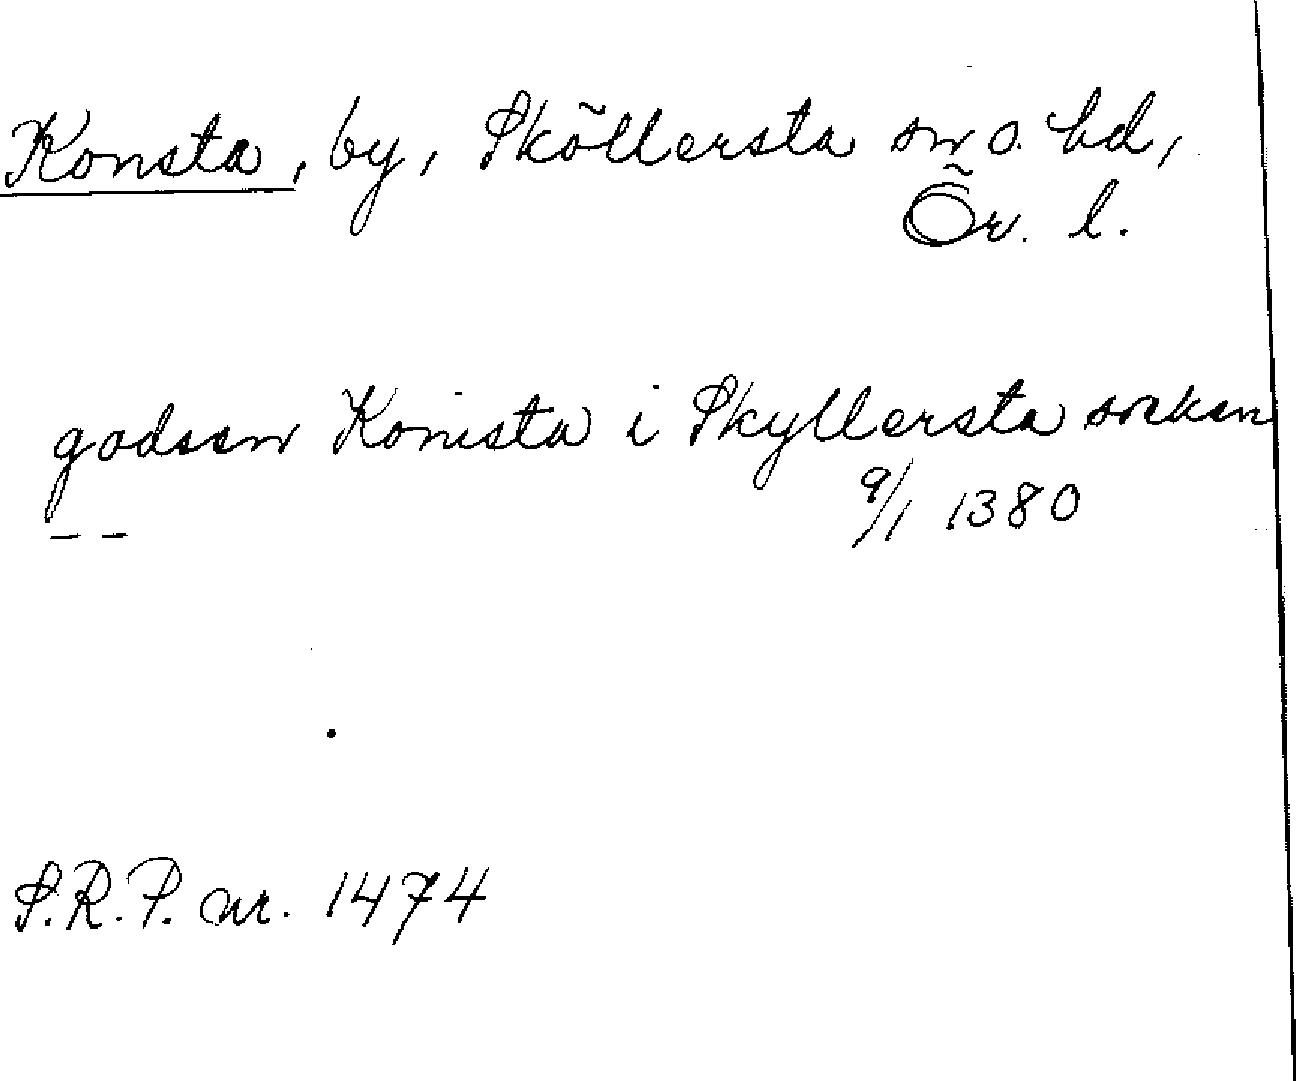 Konsta, by, Sköllersta sn o. hd,
Ör. l.
godsen Konista i Skyllersta soken
9/1 1380
– –
S.R.P. nr. 1474